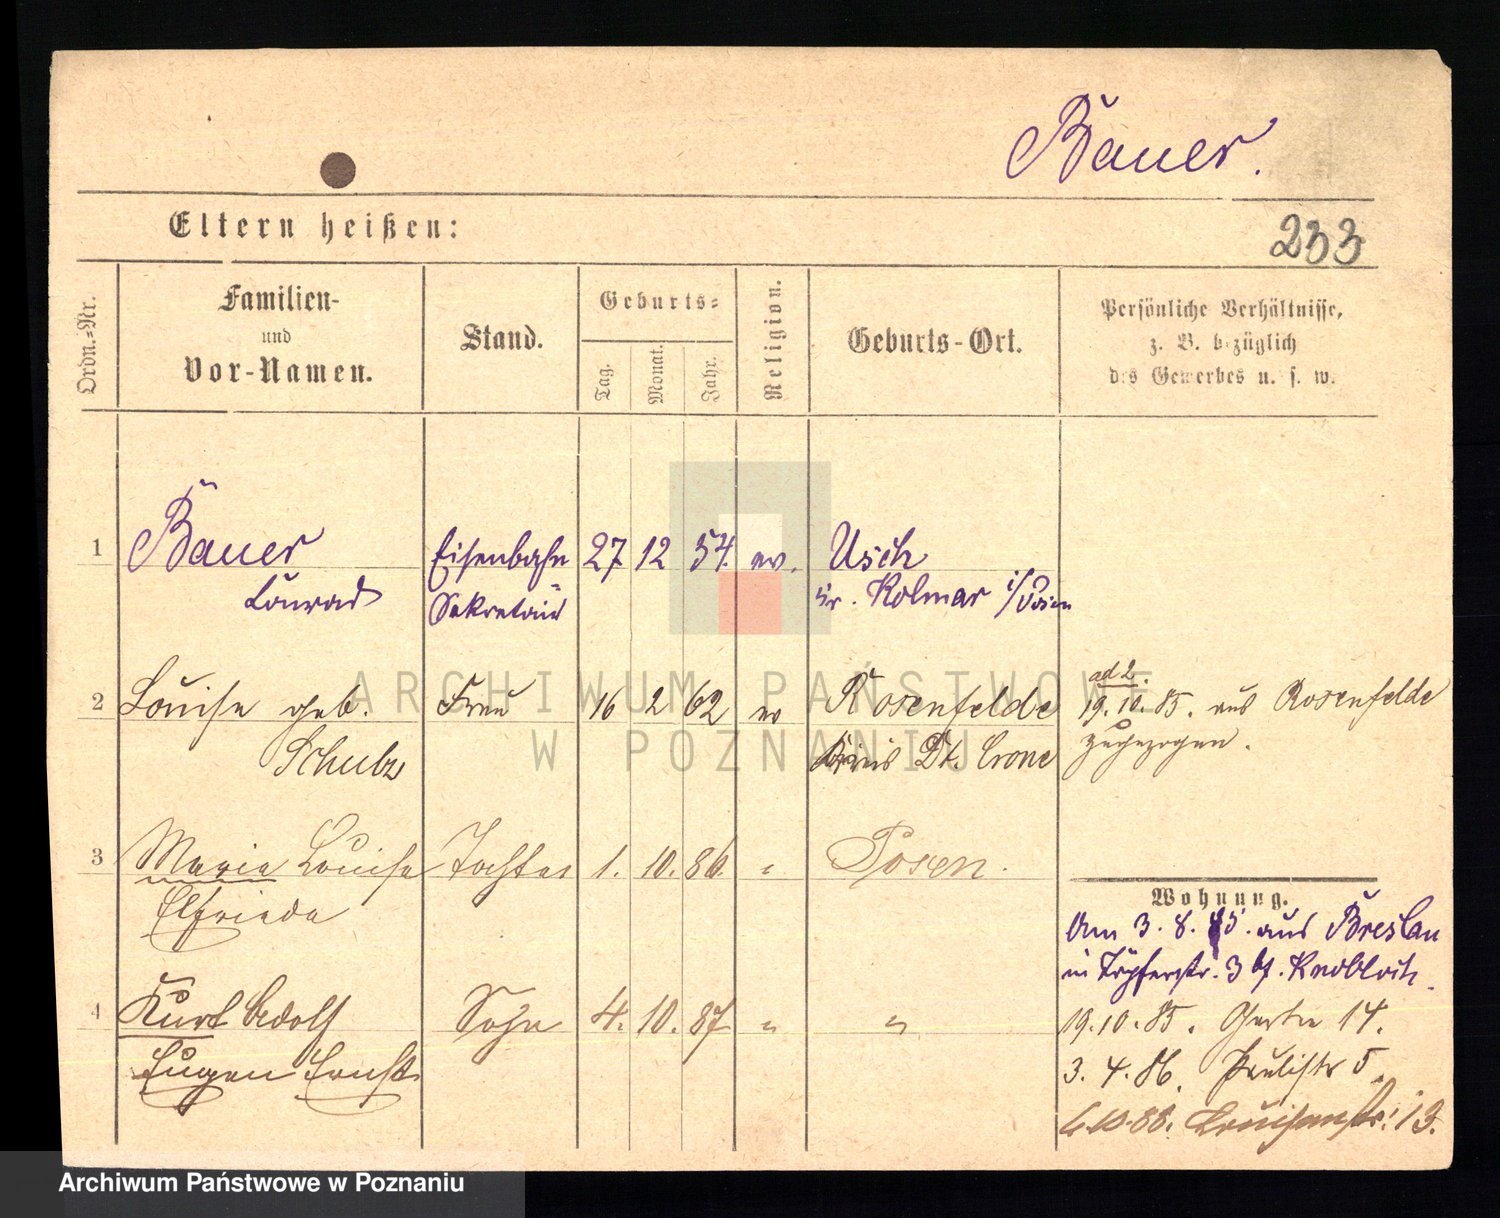 Bauer.
Eltern heißen:
233
Ordn.-Nr.
Familien-
und
Vor-Namen.
Stand.
Geburts-
Tag.
Monat.
Jahr.
Religion.
Geburts-Ort.
Persönliche Verhältnisse,
z. B. bezüglich
des Gewerbes u. s. w.
1 Bauer Eisenbahn 27 12 54. ev. Usch
Conrad Sekretair Kr. Kolmar i/Posen
ad 2.
2 Louise geb. Frau 16 2 62 ev Rosenfelde 19. 10. 85. aus Rosenfelde
Schulz Kreis Dt. Crone zugezogen.
3 Marie Louise Tochter 1. 10. 86. " Posen.
Elfriede
Wohnung.
Am 3. 8. 85. aus Breslau
in Töpferstr. 3 bf. Knobloch.
4 Kurt Adolf Sohn 4. 10. 87 " "
Eugen Ernst
19. 10. 85. 14.
3. 4. 86. Paulistr 5.
6.10.88. Louisenstr. 13.
ARCHIWUM PAŃSTWOWE
W POZNANIU
Archiwum Państwowe w Poznaniu